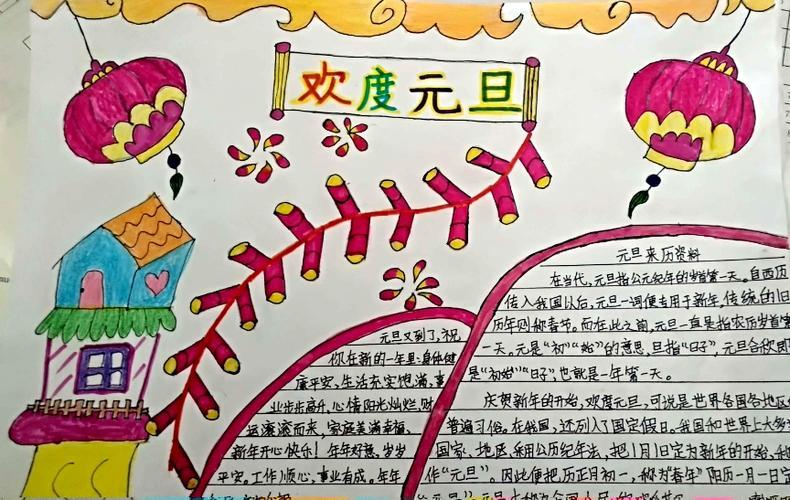 欢度元旦
元旦来历资料
在当代,元旦指公元纪年的岁首第一天。自西历
传入我国以后,元旦一词便专用于新年,传统的旧
历年则称春节。而在此之前,元旦一直是指农历岁首第
一天。元是“初”“始”的意思,旦指“日子”,元旦合称即
是“初始”“日子”,也就是一年第一天。
庆贺新年的开始,欢度元旦,可说是世界各国各地区
普遍习俗。在我国,还列入了国定假日。我国和世界上大多
国家、地区采用公历纪年法,把1月1日定为新年的开始,称
作“元旦”。因此便把历正月初一,称为“春年”阳历一月一日定
元旦又到了,祝
你在新的一年里:身体健
康平安,生活充实饱满,事
业步步高升,心情阳光灿烂,财
运滚滚而来,家庭美满幸福,
新年开心快乐!年年好意,岁岁
平安。工作顺心,事业有成。年年